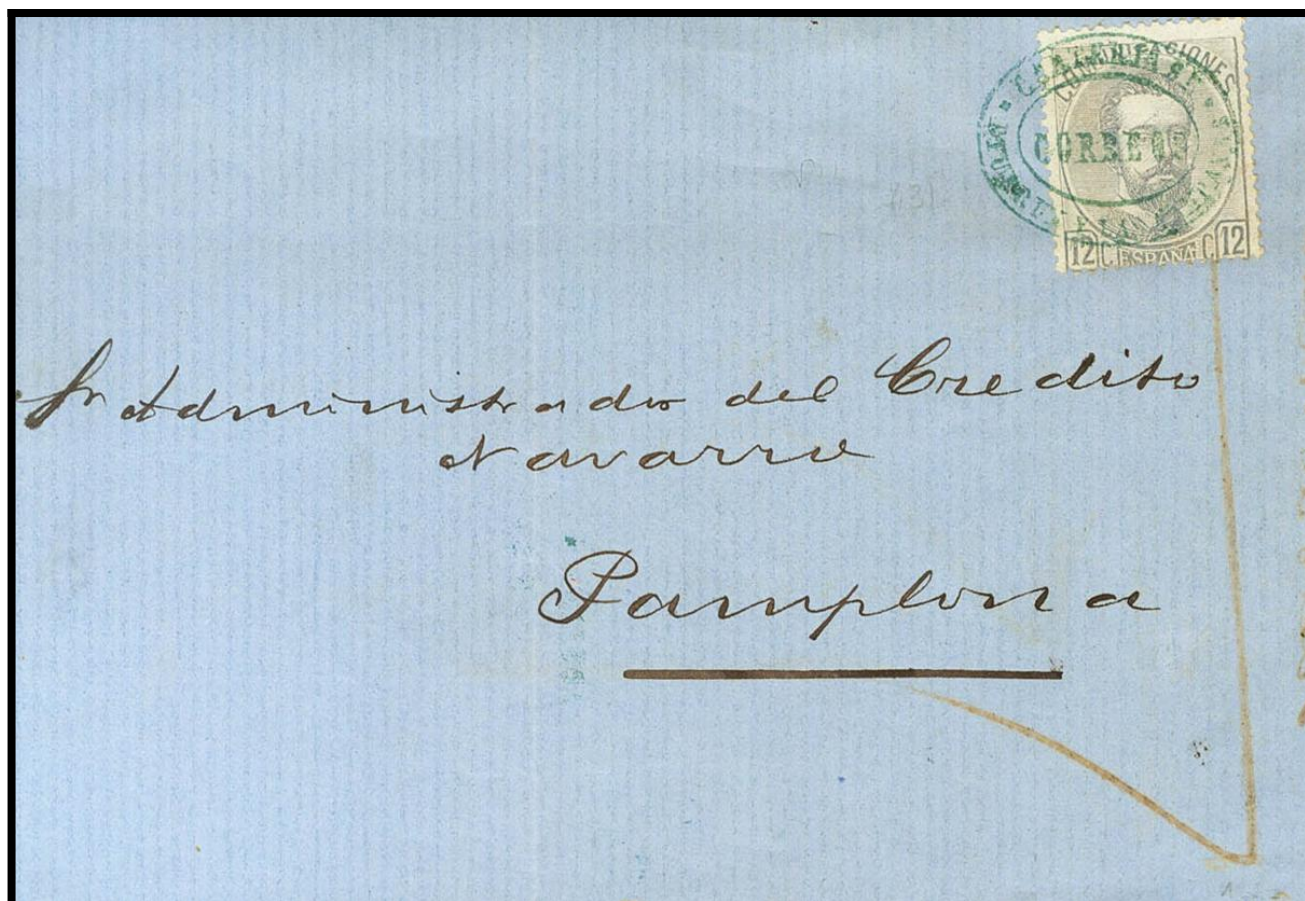 COMUNICACIONES
CARTERIA DE
CORREOS
12 C. ESPAÑA C. 12
431
Sr Administrador del Credito
Navarro
Pamplona